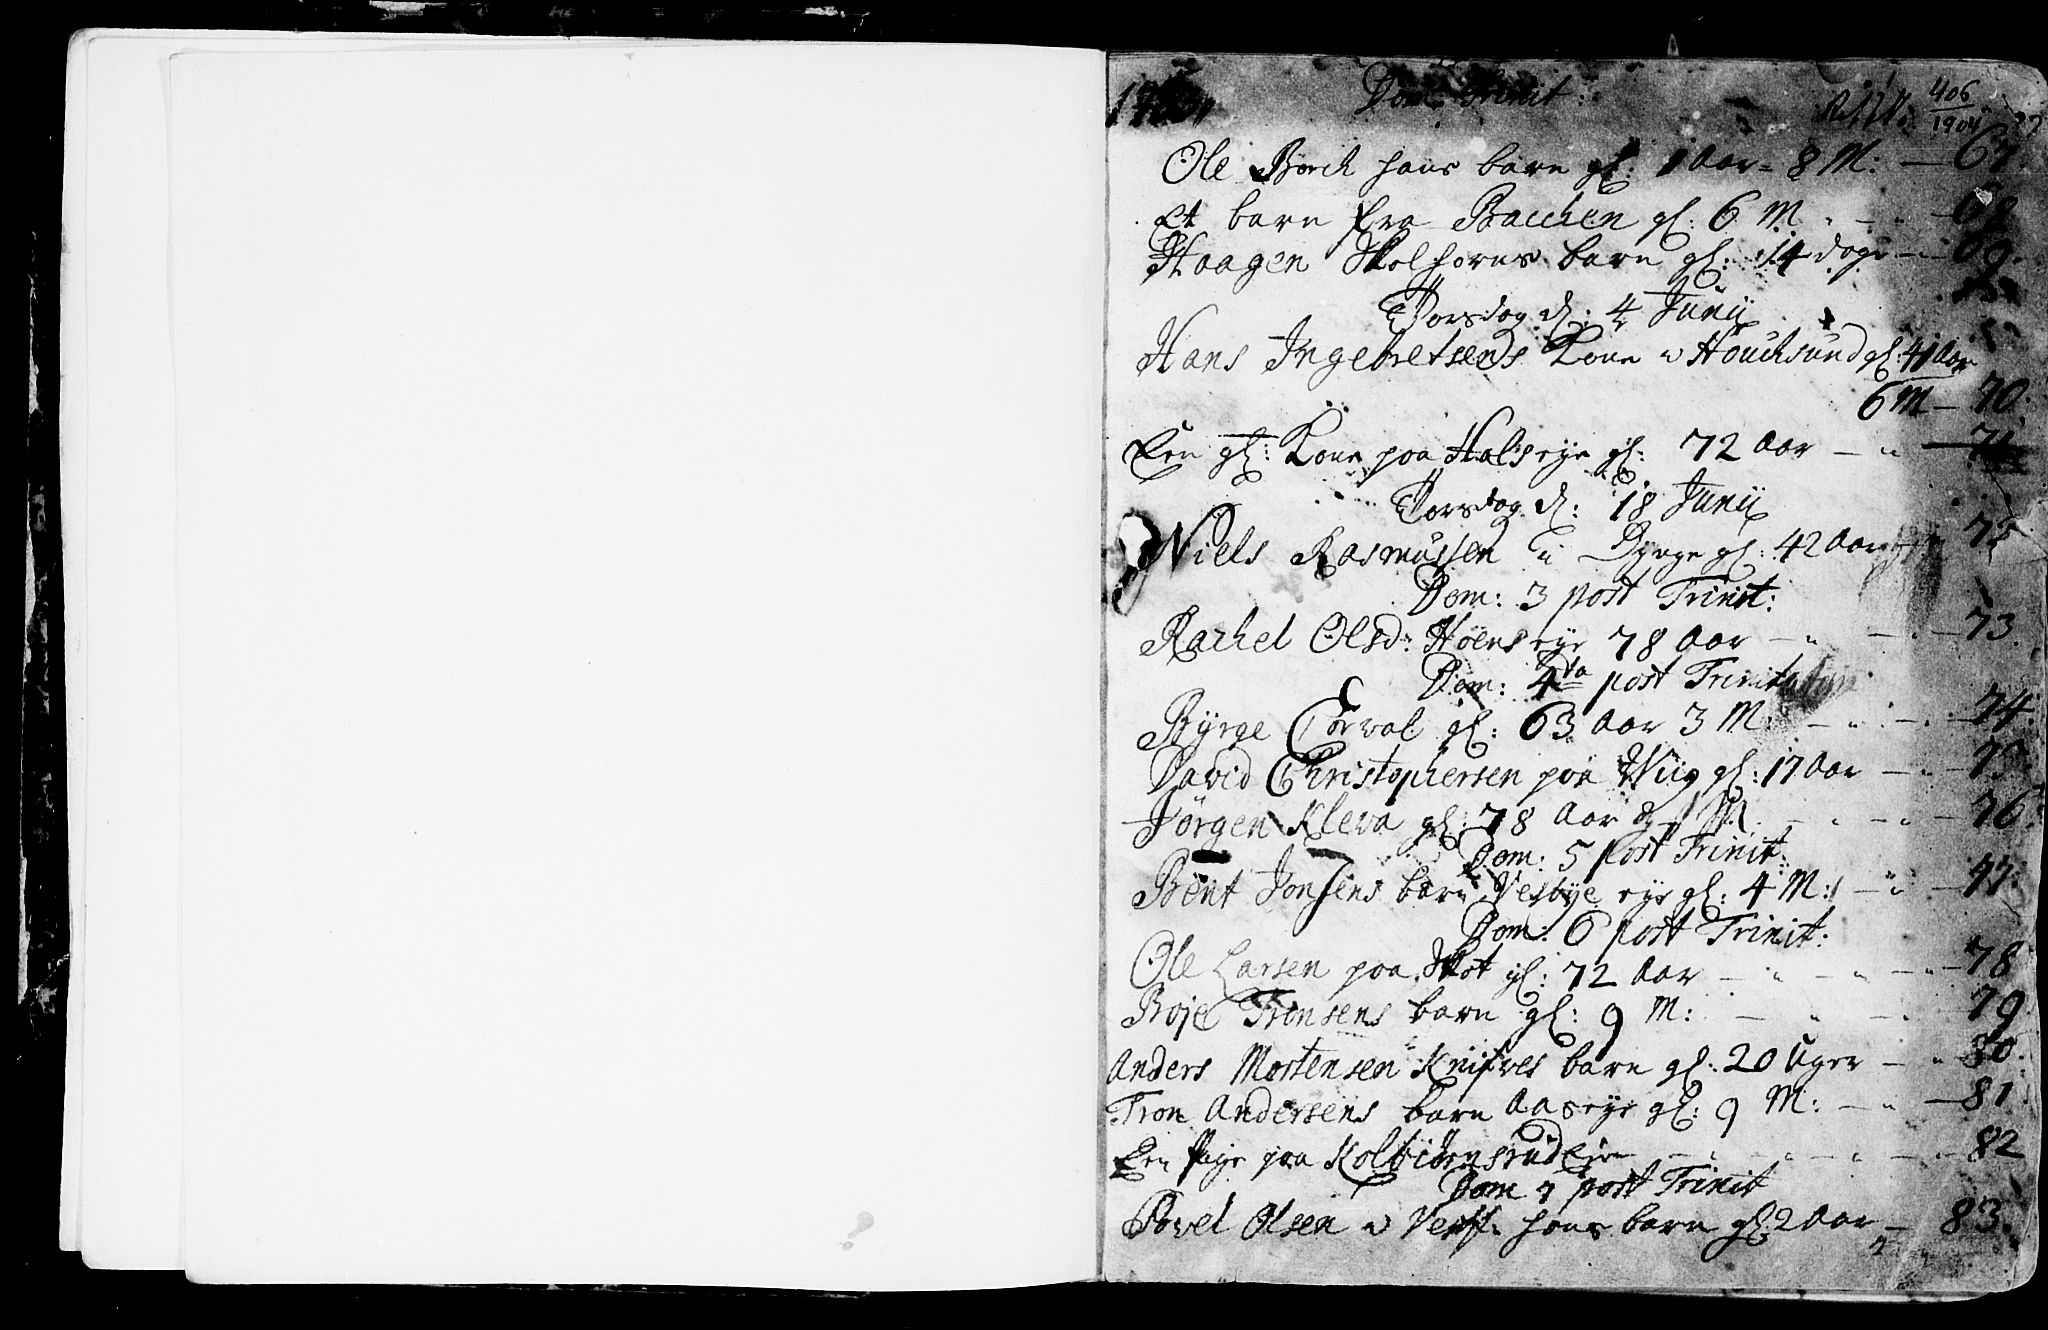 Dom: Trinit:
406
1904
Ole Borch hans barn gl: 1 Aar - 8 M: — 67.
Et barn fra Bacchen gl: 6 M — 68
Haagen Skolhorns barn gl: 14 dage — 69.
Torsdag d: 4 Junij
Hans Ingebretsens Kone v Houchsund gl: 41 Aar
6 M — 70.
Een gl: Kone paa Halseye gl: 72 Aar — 71
Torsdag d: 18 Junij
Niels Rasmussen gl: 42 Aar 72
Dom: 3 post Trinit:
Rachel Olsd: Höens eye 78 Aar — 73
Dom: 4ta post Trinit
Byrge Torvol gl: 63 Aar 3 M: — 74.
David Christophersen paa Wiig gl: 17 Aar — 75
Jörgen Kleva gl: 78 Aar & 1 M — 76.
Dom: 5 post Trinit:
Bent Jonsens barn Vesbye eye gl: 4 M: — 77.
Dom: 6 post Trinit:
Ole Larsen paa Skot gl: 72 Aar — 78
Boje Tronsens barn gl: 9 M: — 79
Anders Mortensen Knifves barn gl: 20 Uger — 80.
Tron Andersens barn Aas eye gl: 9 M: — 81.
Een Pige paa Kolbiörnsrud Eje — 82
Dom 7 post Trinit
Povel Olsen v hans barn gl: 2 Aar — 83.